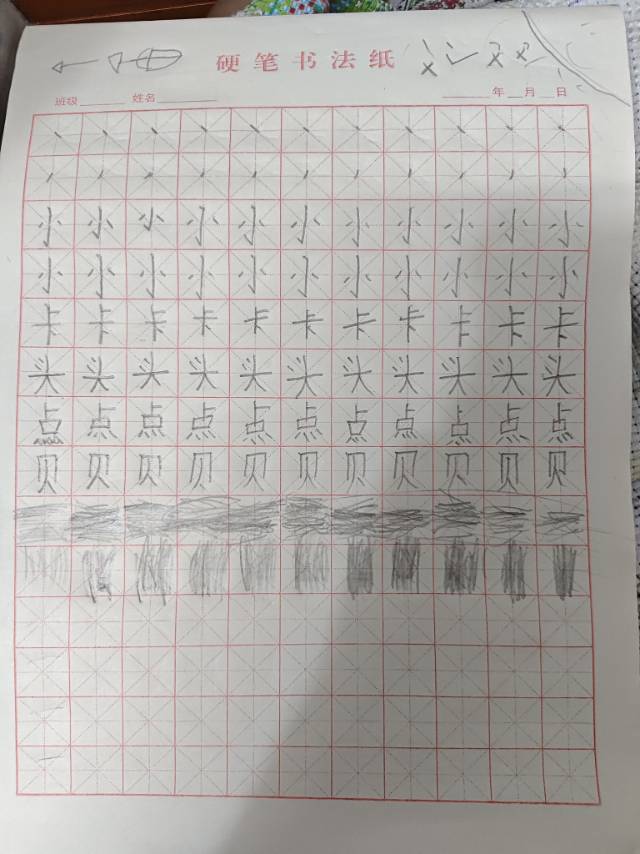 硬笔书法纸
班级 姓名 年 月 日
小小小小小小小小小小小
小小小小小小小小小小小
卡卡卡卡卡卡卡卡卡卡卡
头头头头头头头头头头头
点点点点点点点点点点点
贝贝贝贝贝贝贝贝贝贝贝